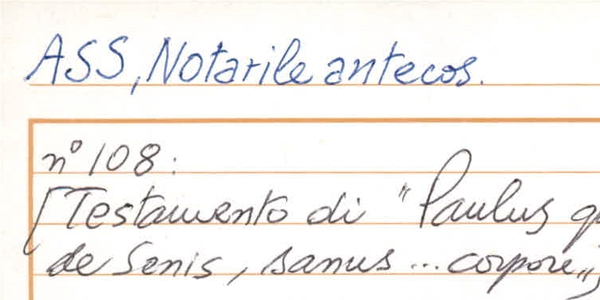 ASS, Notarile antecos.
n° 108:
[Testamento di "Paulus
de Senis, sanus ... corpore"]